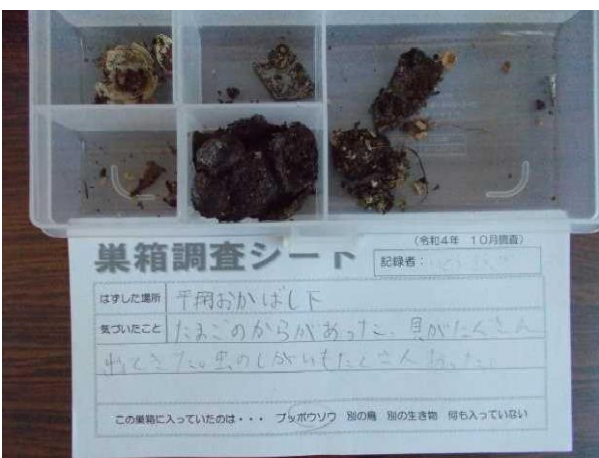 巣箱調査シート
(令和4年 10月調査)
記録者:
はずした場所 平岡おかばし下
気づいたこと たまごのからがあった、貝がたくさん
出てきた。虫のしがいもたくさんあった。
この巣箱に入っていたのは・・・ ブッポウソウ 別の鳥 別の生き物 何も入っていない